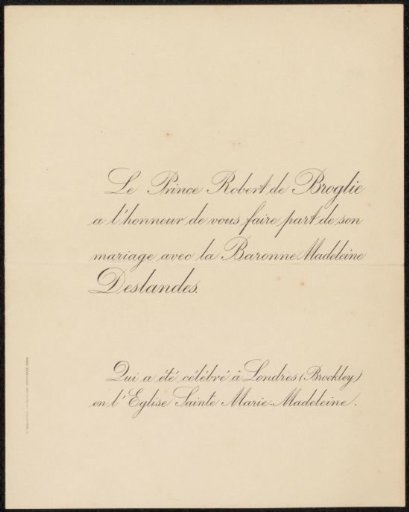 Le Prince Robert de Broglie
a l'honneur de vous faire part de son
mariage avec la Baronne Madeleine
Deslandes.
Qui a été célébré à Londres (Brockley)
en l'Eglise Sainte Marie-Madeleine.